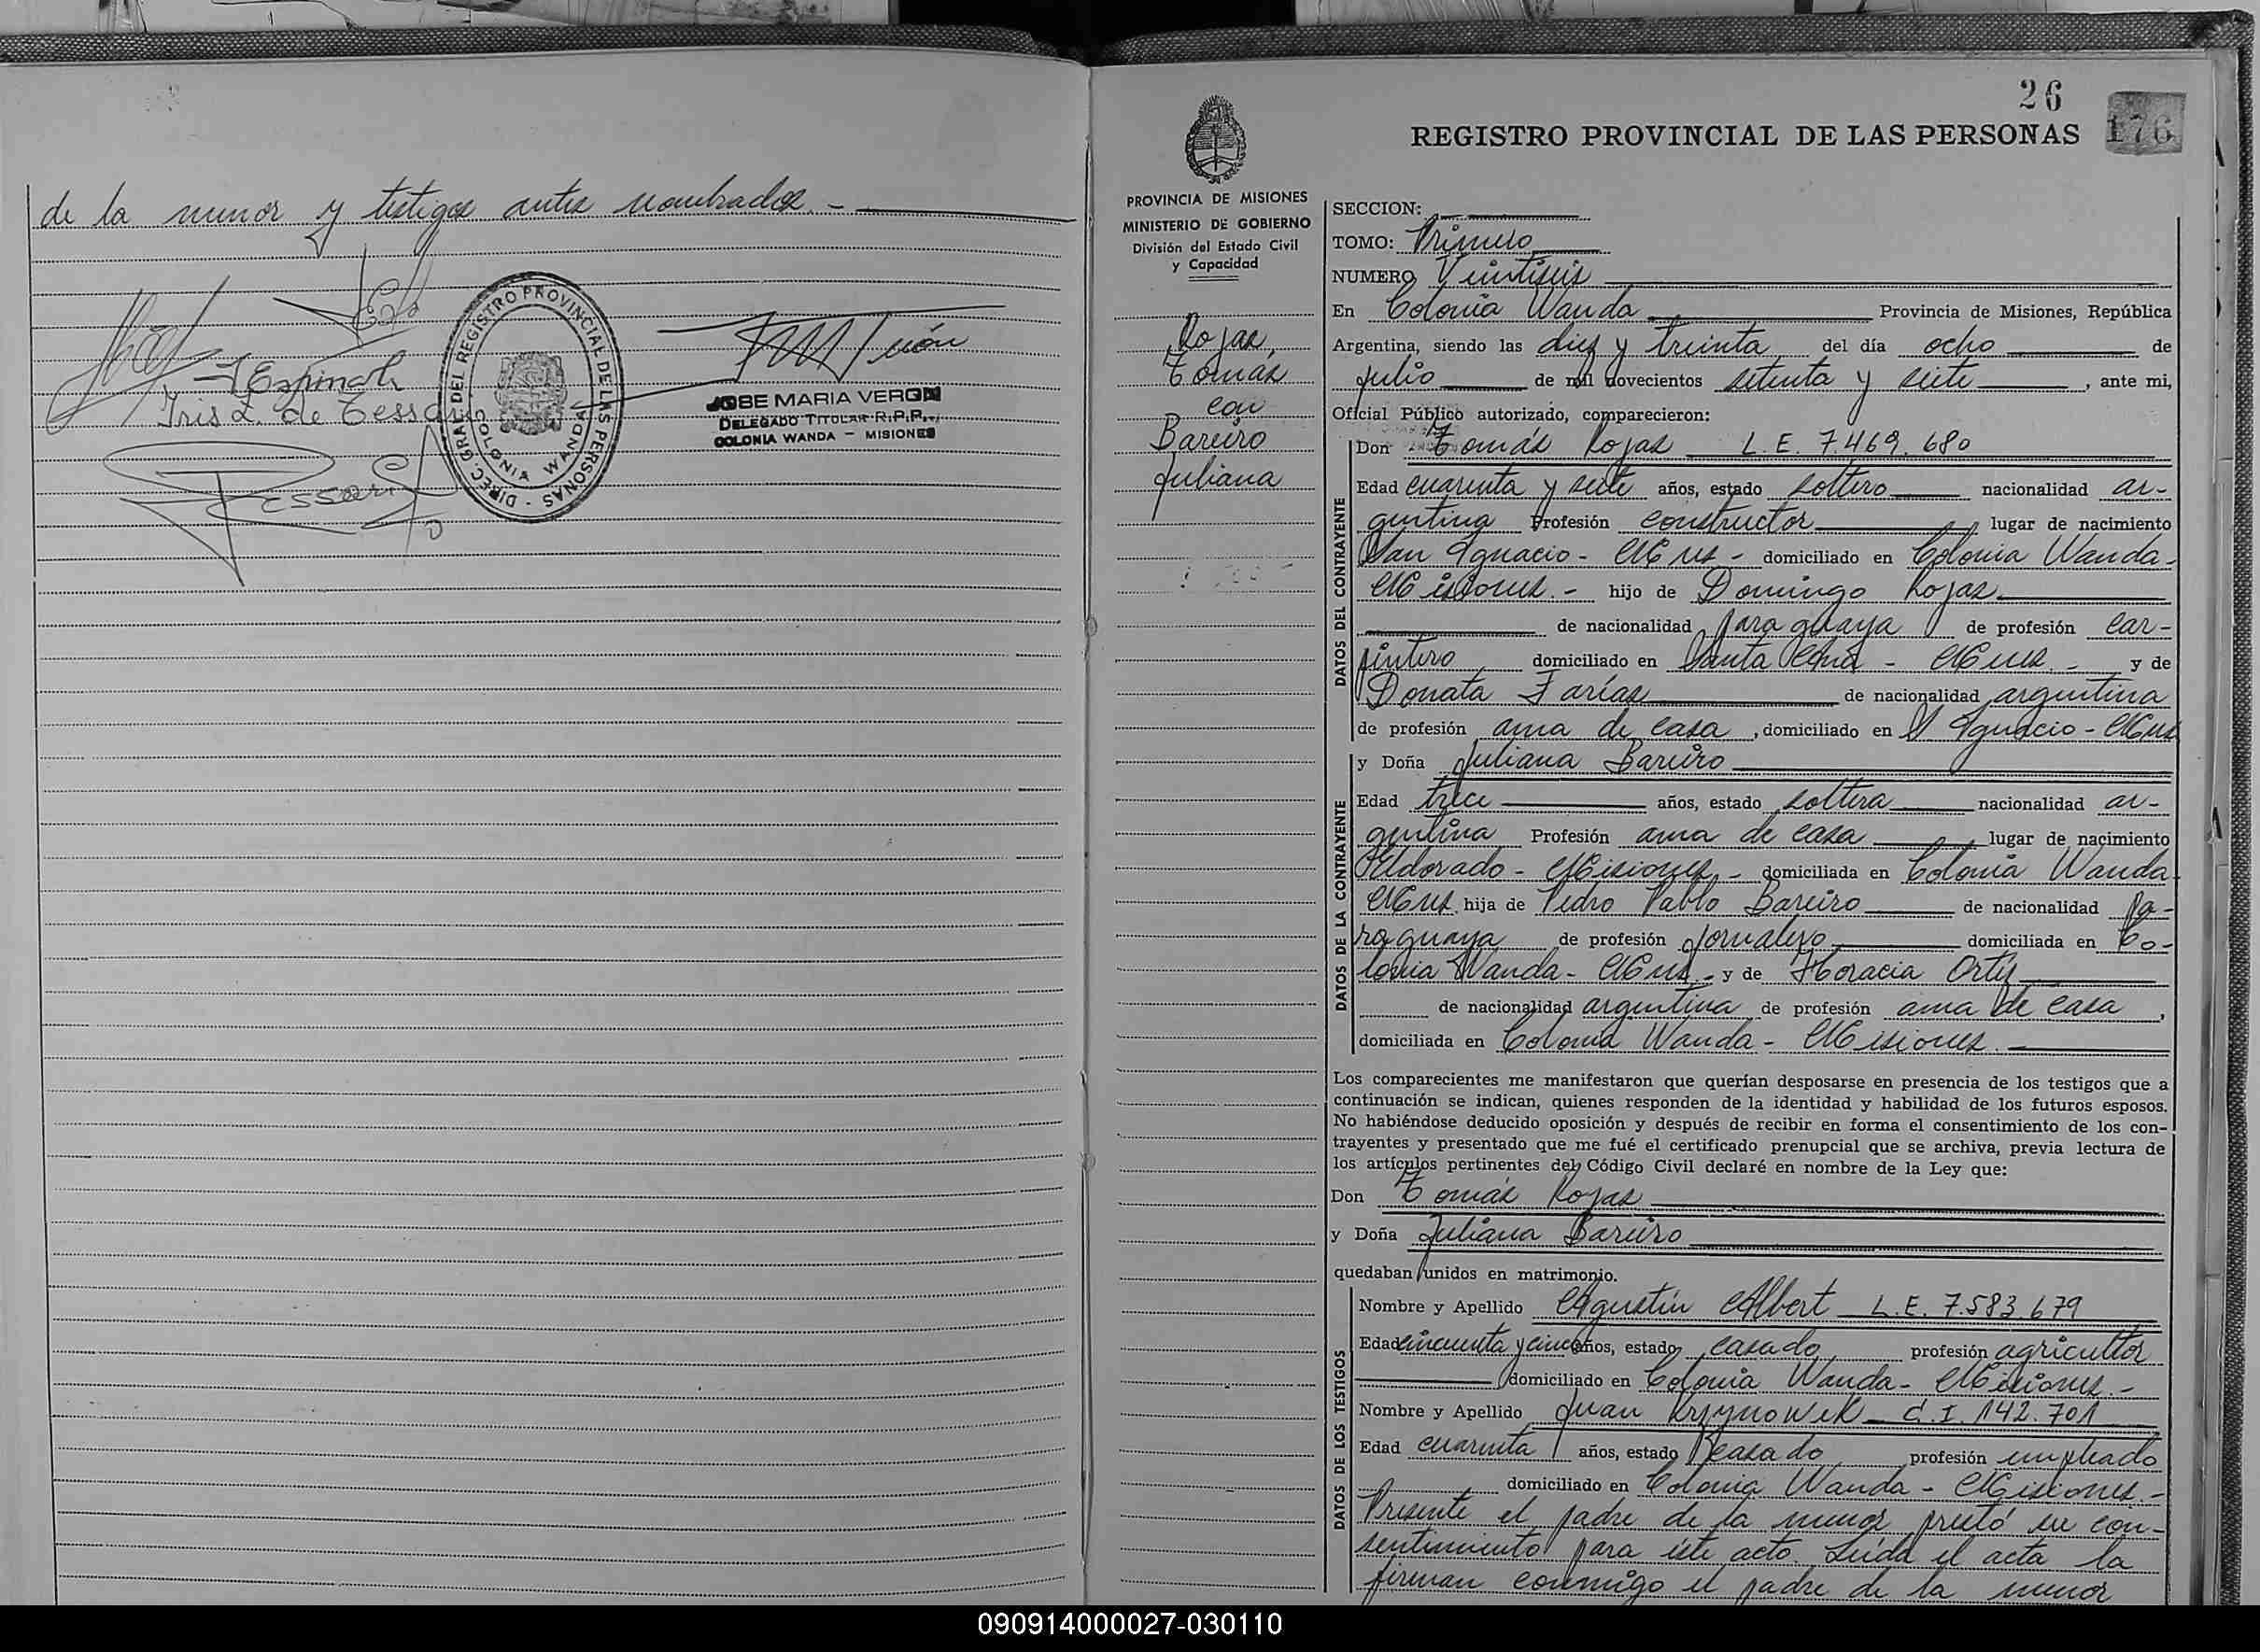 de la menor y testigos antes nombrados. -
J Espinola
Iris L. de Tessari
Tessari
DIREC. GRAL DEL REGISTRO PROVINCIAL DE LAS PERSONAS -
COLONIA WANDA
JOSE MARIA VERON
DELEGADO TITULAR R.P.P.
COLONIA WANDA - MISIONES
26
176
REGISTRO PROVINCIAL DE LAS PERSONAS
PROVINCIA DE MISIONES
MINISTERIO DE GOBIERNO
División del Estado Civil
y Capacidad
Rojas,
Tomás
con
Bareiro
Juliana
SECCION: -
TOMO: Primero
NUMERO Veintiseis
En Colonia Wanda Provincia de Misiones, República
Argentina, siendo las diez y treinta del día ocho de
julio de mil novecientos setenta y siete, ante mi,
Oficial Público autorizado, comparecieron:
DATOS DEL CONTRAYENTE
Don Tomás Rojas L.E. 7.469.680
Edad cuarenta y siete años, estado soltero nacionalidad ar-
gentina Profesión constructor lugar de nacimiento
San Ignacio - Mnes - domiciliado en Colonia Wanda -
Misiones. - hijo de Domingo Rojas
de nacionalidad paraguaya de profesión car-
pintero domiciliado en Santa Ana - Mnes. - y de
Donata Farías de nacionalidad argentina
de profesión ama de casa, domiciliado en S Ignacio - Mnes
DATOS DE LA CONTRAYENTE
y Doña Juliana Bareiro
Edad trece años, estado soltera nacionalidad ar-
gentina Profesión ama de casa lugar de nacimiento
Eldorado - Misiones - domiciliada en Colonia Wanda -
Mnes. hija de Pedro Pablo Bareiro de nacionalidad pa-
raguaya de profesión jornalero domiciliada en Co-
lonia Wanda - Mnes - y de Horacia Ortiz
de nacionalidad argentina de profesión ama de casa,
domiciliada en Colonia Wanda - Misiones. -
Los comparecientes me manifestaron que querían desposarse en presencia de los testigos que a
continuación se indican, quienes responden de la identidad y habilidad de los futuros esposos.
No habiéndose deducido oposición y después de recibir en forma el consentimiento de los con-
trayentes y presentado que me fué el certificado prenupcial que se archiva, previa lectura de
los artículos pertinentes del Código Civil declaré en nombre de la Ley que:
Don Tomás Rojas
y Doña Juliana Bareiro
quedaban unidos en matrimonio.
DATOS DE LOS TESTIGOS
Nombre y Apellido Agustín Albert L.E. 7.583.679
Edad cincuenta y cinco años, estado casado profesión agricultor
domiciliado en Colonia Wanda - Misiones. -
Nombre y Apellido Juan Krzynowek - C.I. 142.701
Edad cuarenta años, estado casado profesión empleado
domiciliado en Colonia Wanda - Misiones. -
Presente el padre de la menor prestó su con-
sentimiento para éste acto. Leída el acta la
firman conmigo el padre de la menor
090914000027-030110